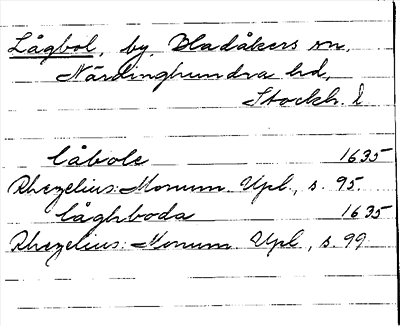 Lågbol, by, Bladåkers sn,
Närdinghundra hd,
Stockh. l
låbole 1635
Rhezelius: Monum. Upl., s. 95.
låghboda 1635
Rhezelius: Monum. Upl., s. 99